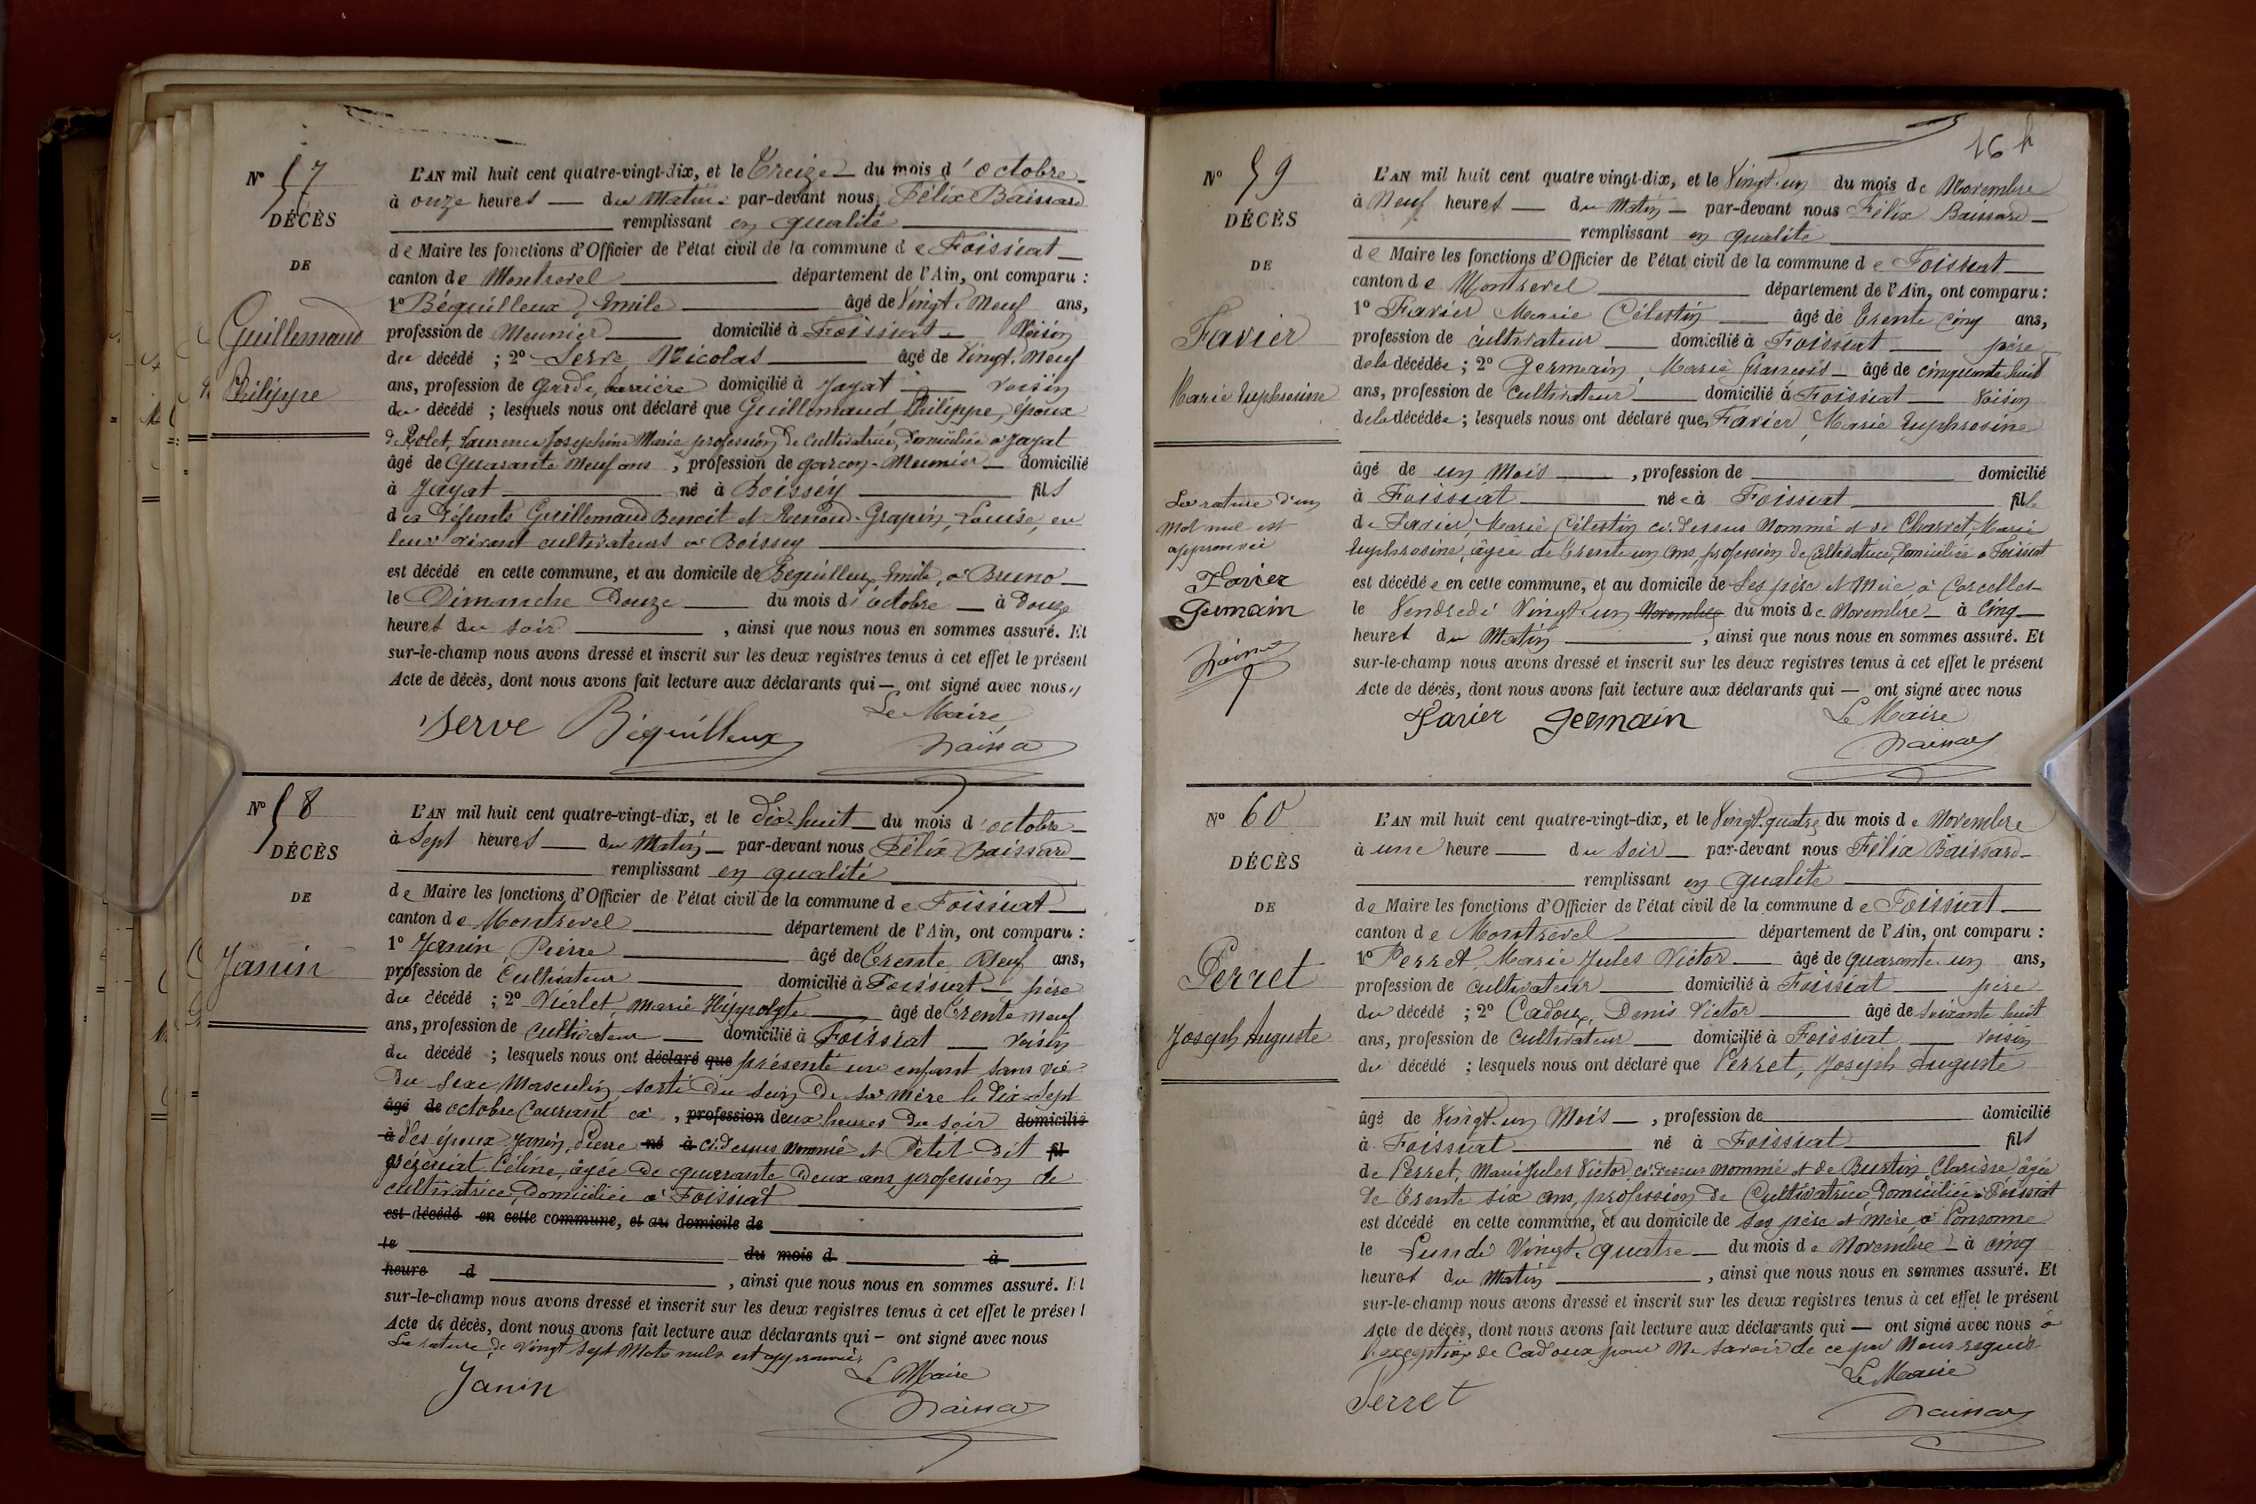 N° 57
DÉCÈS
DE
Guillemaud
Philippe
L'AN mil huit cent quatre-vingt-dix, et le Treize du mois d'octobre
à onze heures du Matin par-devant nous Félix Baissard
remplissant en qualité
de Maire les fonctions d'Officier de l'état civil de la commune de Foissiat
canton de Montrevel département de l'Ain, ont comparu :
1° Béquilleux, Emile âgé de Vingt-Neuf ans,
profession de Meunier domicilié à Foissiat Voisin
du décédé ; 2° Serve Nicolas âgé de Vingt-Neuf
ans, profession de garde barrière domicilié à Jayat voisin
du décédé ; lesquels nous ont déclaré que Guillemaud Philippe, époux
de Rolet, Laurence Joséphine Marie profession de cultivatrice, domiciliée à Jayat
âgé de Quarante Neuf ans, profession de garçon-Meunier domicilié
à Jayat né à Boissey fils
des défunts Guillemaud Benoît et Renoud-Grapin, Louise, en
leur vivant cultivateurs à Boissey
est décédé en cette commune, et au domicile de Béquilleux Emile, à Bruno
le Dimanche Douze du mois d'octobre à Douze
heures du soir, ainsi que nous nous en sommes assuré. Et
sur-le-champ nous avons dressé et inscrit sur les deux registres tenus à cet effet le présent
Acte de décès, dont nous avons fait lecture aux déclarants qui ont signé avec nous
Le Maire
Serve Béquilleux Baissard
N° 58
DÉCÈS
DE
Janin
L'AN mil huit cent quatre-vingt-dix, et le dix-huit du mois d'octobre
à Sept heures du Matin par-devant nous Félix Baissard
remplissant en qualité
de Maire les fonctions d'Officier de l'état civil de la commune de Foissiat
canton de Montrevel département de l'Ain, ont comparu :
1° Janin, Pierre âgé de Trente Neuf ans,
profession de Cultivateur domicilié à Foissiat père
du décédé ; 2° Vierlet, Marie Hippolyte âgé de Trente neuf
ans, profession de cultivateur domicilié à Foissiat Voisin
du décédé ; lesquels nous ont déclaré que présenté un enfant sans vie
du sexe Masculin, sorti du sein de sa mère le dix-sept
âgé de octobre Courant à, profession deux heures du soir domicilié
à des époux Janin, Pierre né à ci-dessus nommé et Petit dit fil
Céline, âgée de quarante deux ans profession de
cultivatrice, domiciliée à Foissiat
est décédé en cette commune, et au domicile de
le du mois d à
heure d, ainsi que nous nous en sommes assuré. Et
sur-le-champ nous avons dressé et inscrit sur les deux registres tenus à cet effet le présent
Acte de décès, dont nous avons fait lecture aux déclarants qui ont signé avec nous
La rature de vingt sept Mots nuls est approuvée
Le Maire
Janin Baissard
16
N° 59
DÉCÈS
DE
Favier
Marie Euphrosine
La rature d'un
mot nul est
approuvée
Favier
Germain
L'AN mil huit cent quatre vingt-dix, et le Vingt-un du mois de Novembre
à Neuf heures du Matin par-devant nous Félix Baissard
remplissant en qualité
de Maire les fonctions d'Officier de l'état civil de la commune de Foissiat
canton de Montrevel département de l'Ain, ont comparu :
1° Favier Marie Célestin âgé de Trente Cinq ans,
profession de cultivateur domicilié à Foissiat père
de la décédée ; 2° Germain, Marie François âgé de cinquante huit
ans, profession de Cultivateur domicilié à Foissiat Voisin
de la décédée ; lesquels nous ont déclaré que Favier, Marie Euphrosine
âgé de un Mois, profession de domicilié
à Foissiat née à Foissiat fille
de Favier, Marie Célestin ci-dessus Nommé et de Charvet, Marie
Euphrosine, âgée de Trente un ans, profession de Cultivatrice, domiciliée à Foissiat
est décédée en cette commune, et au domicile de Ses père et Mère à Corcelles
le Vendredi Vingt-un Novembre du mois de Novembre à Cinq
heures du Matin, ainsi que nous nous en sommes assuré. Et
sur-le-champ nous avons dressé et inscrit sur les deux registres tenus à cet effet le présent
Acte de décès, dont nous avons fait lecture aux déclarants qui ont signé avec nous
Favier Germain Le Maire
Baissard
N° 60
DÉCÈS
DE
Perret
Joseph Auguste
L'AN mil huit cent quatre-vingt-dix, et le Vingt-quatre du mois de Novembre
à une heure du Soir par-devant nous Félix Baissard
remplissant en qualité
de Maire les fonctions d'Officier de l'état civil de la commune de Foissiat
canton de Montrevel département de l'Ain, ont comparu :
1° Perret, Marie Jules Victor âgé de quarante-un ans,
profession de cultivateur domicilié à Foissiat père
du décédé ; 2° Cadoux, Denis Victor âgé de soixante huit
ans, profession de Cultivateur domicilié à Foissiat voisin
du décédé ; lesquels nous ont déclaré que Perret, Joseph Auguste
âgé de Vingt-un Mois, profession de domicilié
à Foissiat né à Foissiat fils
de Perret, Marie Jules Victor, ci-dessus nommé et de Burtin Clarisse âgée
de Trente six ans, profession de Cultivatrice, domiciliée à Foissiat
est décédé en cette commune, et au domicile de ses père et mère, à Ponsonne
le Lundi Vingt-quatre du mois de Novembre à cinq
heures du Matin, ainsi que nous nous en sommes assuré. Et
sur-le-champ nous avons dressé et inscrit sur les deux registres tenus à cet effet le présent
Acte de décès, dont nous avons fait lecture aux déclarants qui ont signé avec nous à
l'exception de Cadoux pour Ne savoir de ce par Nous requis
Le Maire
Perret Baissard